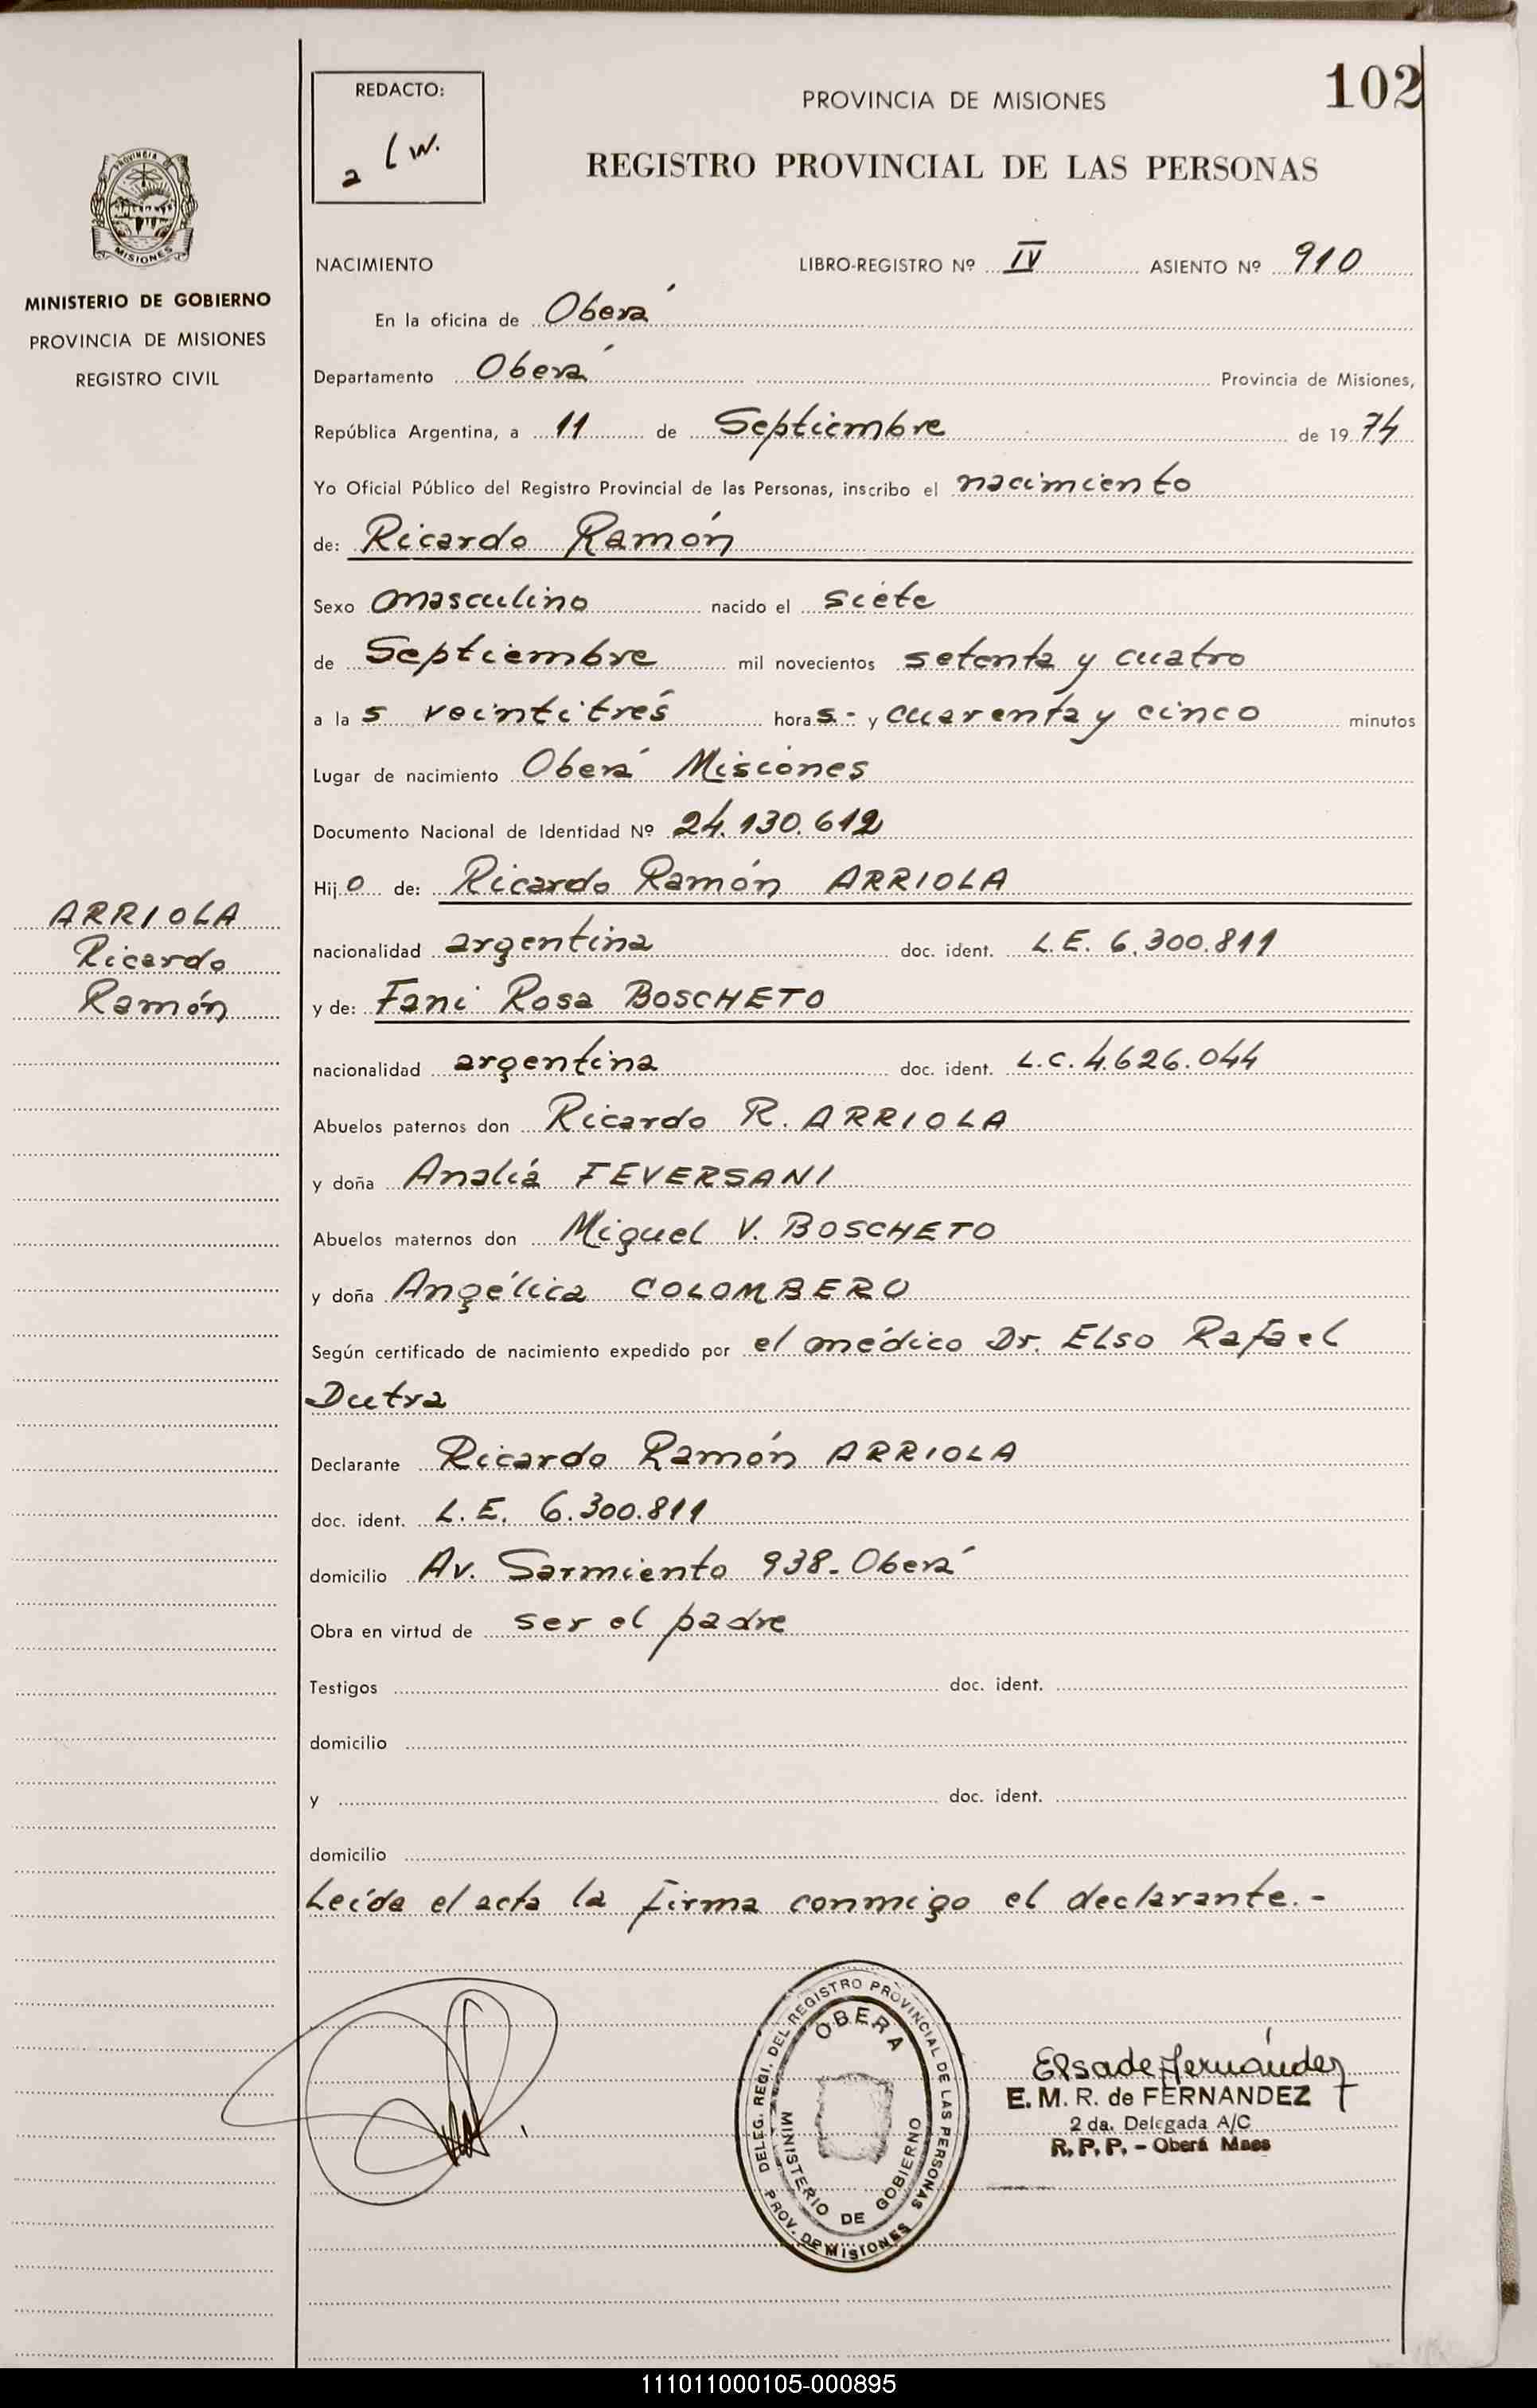 102
REDACTO:
PROVINCIA DE MISIONES
REGISTRO PROVINCIAL DE LAS PERSONAS
PROVINCIA DE
MISIONES
MINISTERIO DE GOBIERNO
PROVINCIA DE MISIONES
REGISTRO CIVIL
NACIMIENTO LIBRO-REGISTRO Nº IV ASIENTO Nº 910
En la oficina de Oberá
Departamento Oberá Provincia de Misiones,
República Argentina, a 11 de Septiembre de 1974
Yo Oficial Público del Registro Provincial de las Personas, inscribo el nacimiento
de: Ricardo Ramón
Sexo masculino nacido el siete
de Septiembre mil novecientos setenta y cuatro
a las veintitrés horas.- y cuarenta y cinco minutos
Lugar de nacimiento Oberá Misiones
Documento Nacional de Identidad Nº 24.130.612
Hijo de: Ricardo Ramón ARRIOLA
ARRIOLA
Ricardo
Ramón
nacionalidad argentina doc. ident. L.E. 6.300.811
y de: Fani Rosa BOSCHETO
nacionalidad argentina doc. ident. L.C. 4.626.044
Abuelos paternos don Ricardo R. ARRIOLA
y doña Analiá FEVERSANI
Abuelos maternos don Miguel V. BOSCHETO
y doña Angélica COLOMBERO
Según certificado de nacimiento expedido por el médico Dr. ELSO Rafael
Dutra
Declarante Ricardo Ramón ARRIOLA
doc. ident. L.E. 6.300.811
domicilio Av. Sarmiento 938- Oberá
Obra en virtud de ser el padre
Testigos doc. ident.
domicilio
y doc. ident.
domicilio
Leída el acta la firma conmigo el declarante.-
DELEG. REGI. DEL REGISTRO PROVINCIAL DE LAS PERSONAS
OBERA
MINISTERIO DE GOBIERNO
PROV. DE MISIONES
Elsa de Fernández
E. M. R. de FERNANDEZ
2 da. Delegada A/C
R. P. P. - Oberá Mnes
111011000105-000895